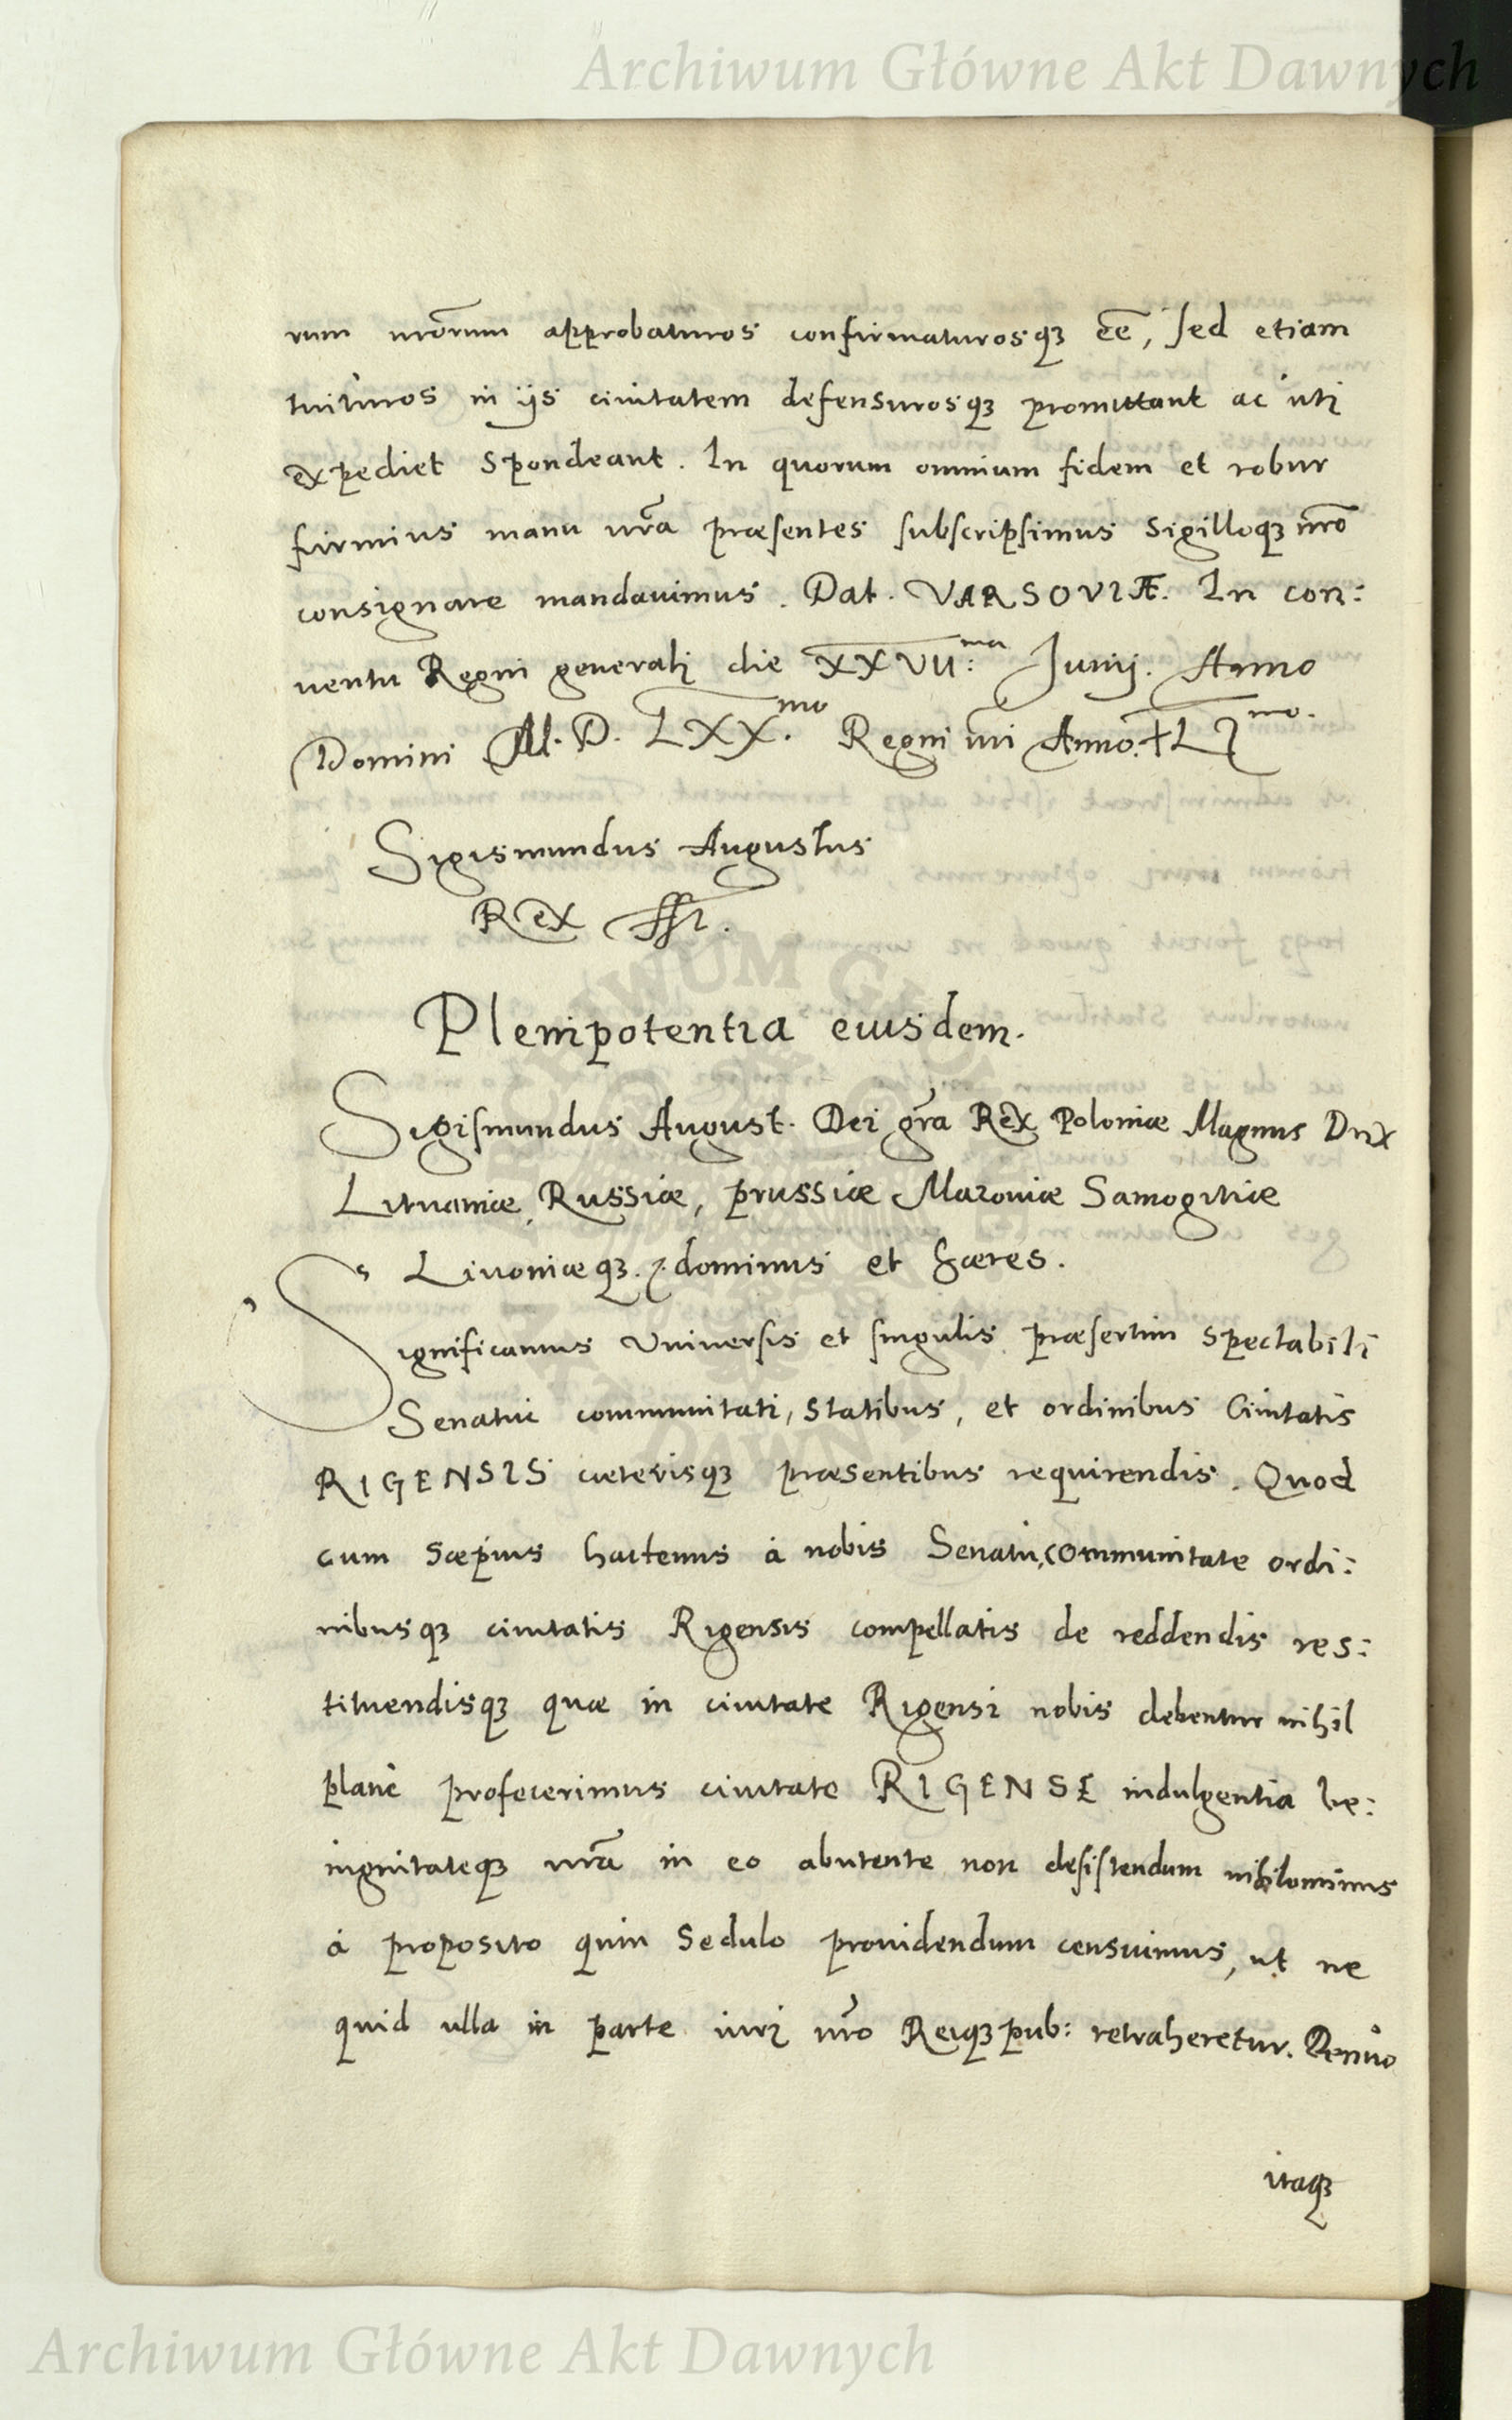 Archiwum Główne Akt Dawnych
rum nr̃orum approbaturos confirmaturosq3 eẽ, sed etiam
tuituros in ijs ciuitatem defensurosq3 promittant ac uti
expediet spondeant. In quorum omnium fidem et robur
firmius manu nr̃a præsentes subscripsimus sigilloq3 nr̃o
consignare mandauimus. Dat. VARSOVIÆ. In con:
uentu Regni generali die XXVII:ma Junij. Anno
Domini M. D. LXX.mo Regni nr̃i Anno XLI mo.
Sigismundus Augustus
Rex sst.
Plenipotentia eiusdem.
Sigismundus August. Dei gr̃a Rex Poloniæ Magnus Dux
Lituaniæ, Russiæ, prussiæ Mazouiæ Samogitiæ
Liuoniæq3. dominus et hæres.
Significamus Vniuersis et singulis præsertim spectabili
Senatui communitati, statibus, et ordinibus Ciuitatis
RIGENSIS cæterisq3 præsentibus requirendis. Quod
cum sæpius hactenus à nobis Senatu, communitate ordi:
nibusq3 ciuitatis Rigensis compellatis de reddendis res:
tituendisq3 quæ in ciuitate Rigensi nobis debentur nihil
planè profecerimus ciuitate RIGENSE indulgentia be:
nignitateq3 nr̃a in eo abutente non desistendum nihilominus
à proposito quin sedulo prouidendum censuimus, ut ne
quid ulla in parte iuri nr̃o Reiq3 pub: retraheretur. Denuo
itaq3
Archiwum Główne Akt Dawnych